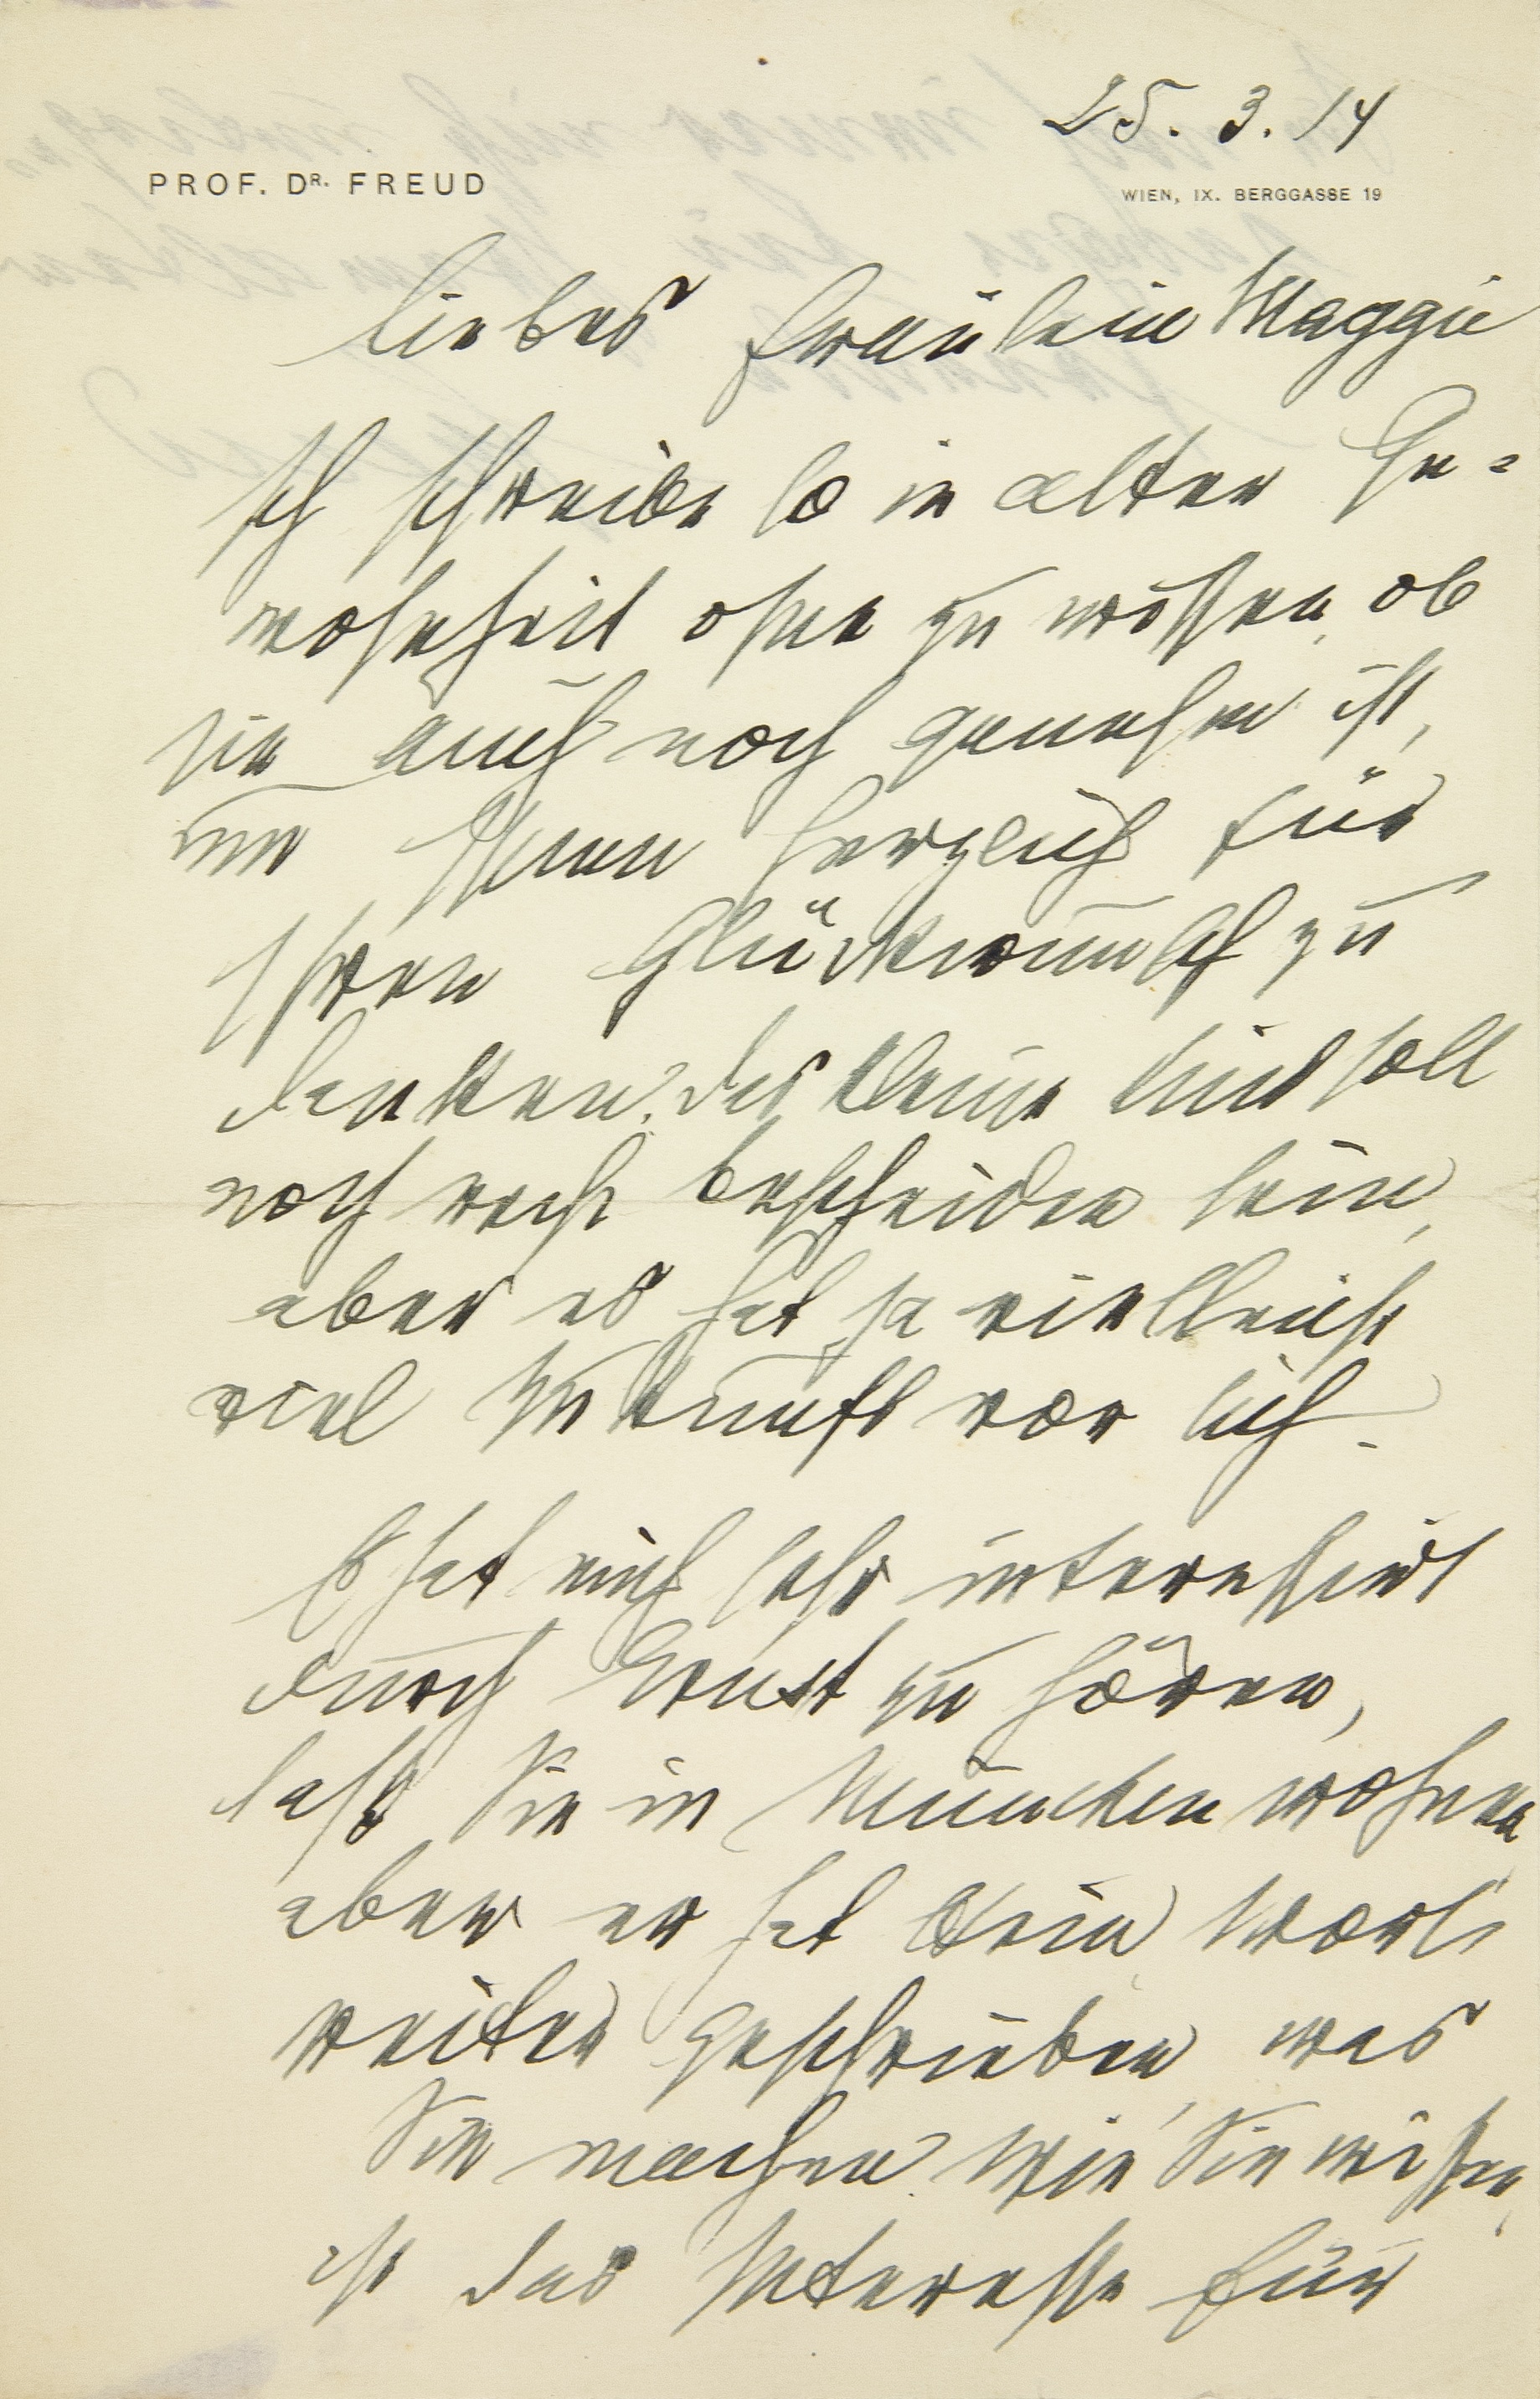 25. 3. 14
PROF. DR. FREUD
WIEN, IX. BERGGASSE 19
Liebes Fräulein Maggie
Ich schreibe so in alter Ge-
wohnheit ohne zu wissen, ob
sie auch noch genehm ist,
um Ihnen herzlich für
Ihren Glückwunsch zu
danken. Das kleine Kind soll
noch recht bescheiden sein,
aber es hat ja vielleicht
viel Zukunft vor sich.
Es hat mich sehr interessirt
durch Ernst zu hören,
daß Sie in München wohnen
aber er hat kein Wort
weiter geschrieben, was
Sie machen. Wie Sie wissen,
ist das Interesse für